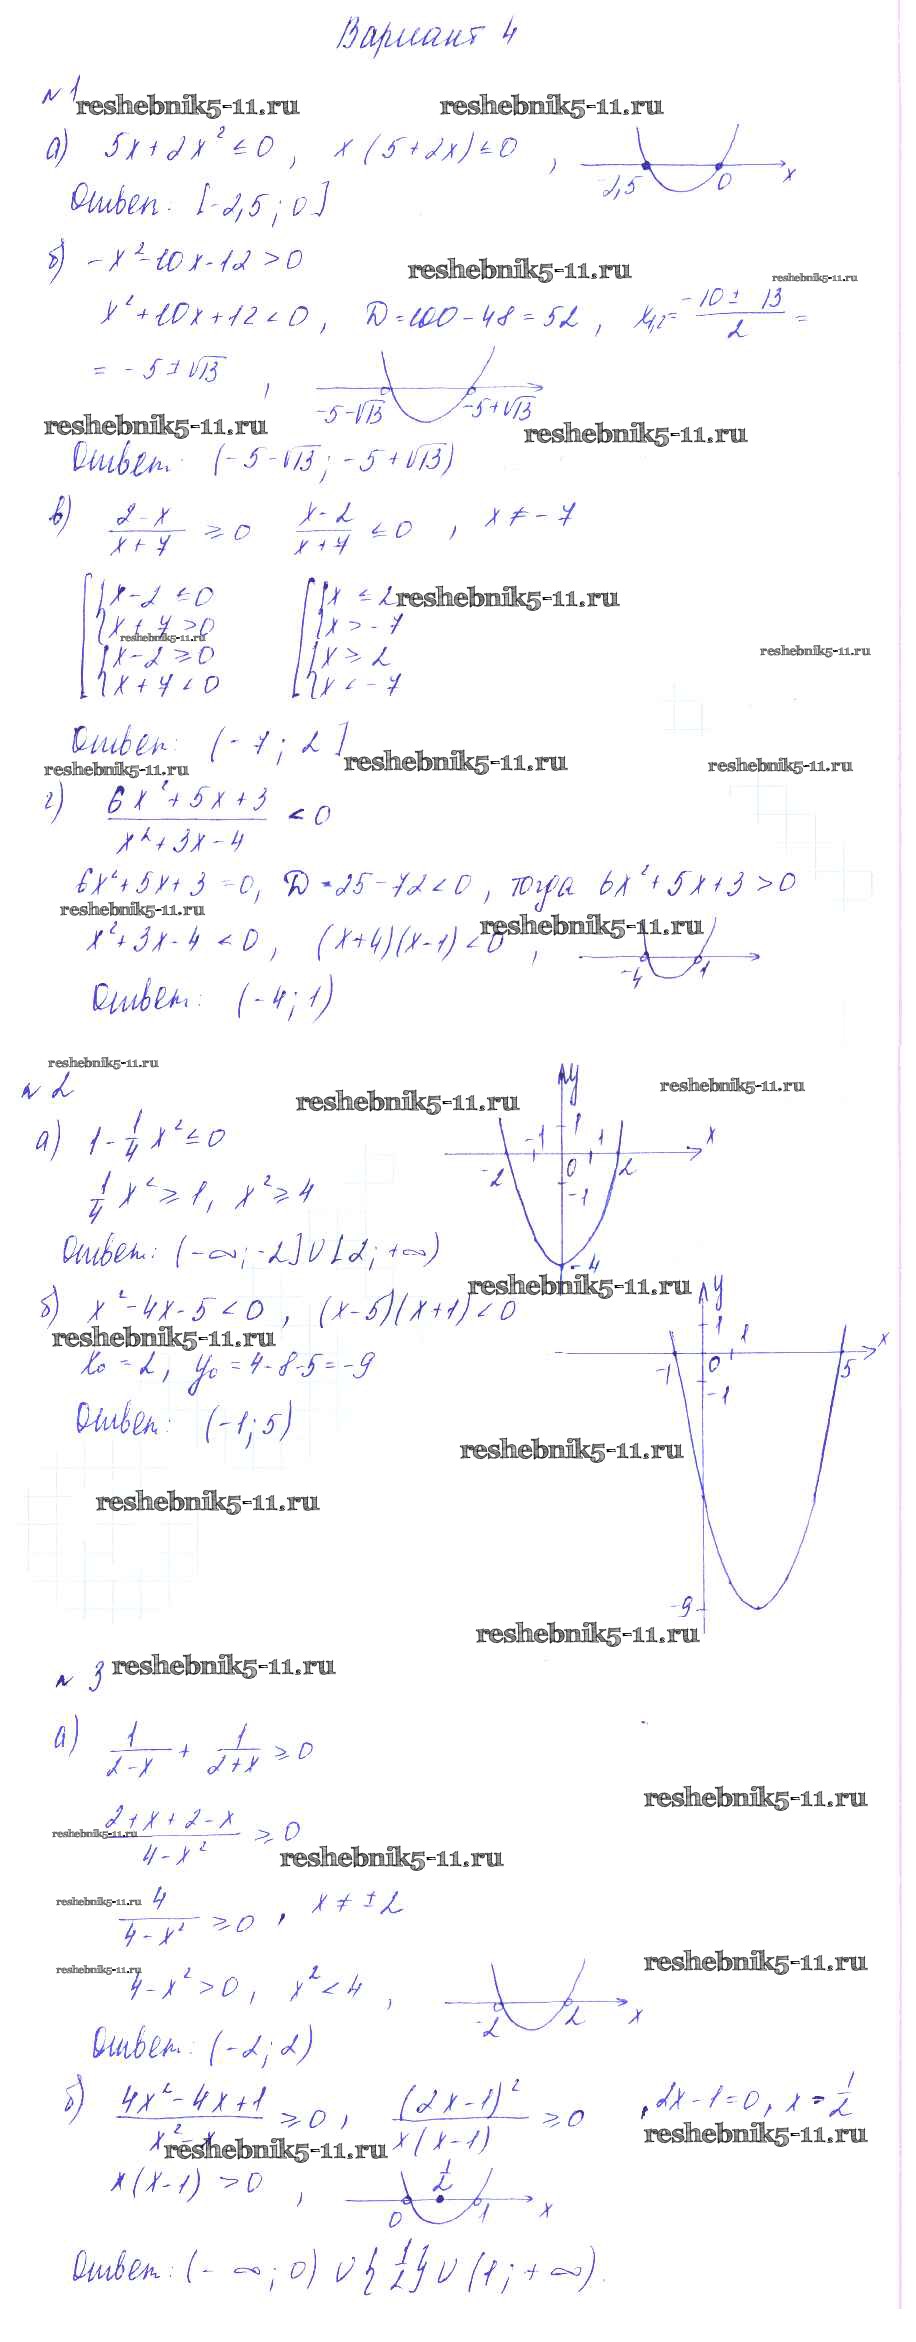 Вариант 4
№1
reshebnik5-11.ru reshebnik5-11.ru
а) 5x+2x² ≤ 0, x(5+2x) ≤ 0, -2,5 0 x
Ответ: [-2,5; 0]
б) -x²-10x-12 > 0
reshebnik5-11.ru reshebnik5-11.ru
x²+10x+12 < 0, D=100-48=52, x₁,₂= (-10 ± 13)/2 =
= -5±√13, -5-√13 -5+√13
reshebnik5-11.ru reshebnik5-11.ru
Ответ: (-5-√13; -5+√13)
в) (2-x)/(x+7) ≥ 0 (x-2)/(x+7) ≤ 0, x ≠ -7
x-2 ≤ 0 x ≤ 2 reshebnik5-11.ru
x+7 > 0 x > -7
reshebnik5-11.ru reshebnik5-11.ru
x-2 ≥ 0 x ≥ 2
x+7 < 0 x < -7
Ответ: (-7; 2]
reshebnik5-11.ru reshebnik5-11.ru reshebnik5-11.ru
г) (6x²+5x+3)/(x²+3x-4) < 0
6x²+5x+3 = 0, D=25-72<0, тогда 6x²+5x+3 > 0
reshebnik5-11.ru reshebnik5-11.ru
x²+3x-4 < 0, (x+4)(x-1) < 0, -4 1
Ответ: (-4; 1)
reshebnik5-11.ru
№2
reshebnik5-11.ru reshebnik5-11.ru
а) 1-1/4 x² ≤ 0
y 1 -1 1 x -2 0 2 -1 -4
1/4 x² ≥ 1, x² ≥ 4
Ответ: (-∞; -2]∪[2; +∞)
reshebnik5-11.ru
б) x²-4x-5 < 0, (x-5)(x+1) < 0
reshebnik5-11.ru
y 1 1 x -1 0 5 -1 -9
x₀ = 2, y₀ = 4-8-5 = -9
Ответ: (-1; 5)
reshebnik5-11.ru
reshebnik5-11.ru
reshebnik5-11.ru
№3 reshebnik5-11.ru
а) 1/(2-x) + 1/(2+x) ≥ 0
reshebnik5-11.ru
(2+x+2-x)/(4-x²) ≥ 0
reshebnik5-11.ru reshebnik5-11.ru
reshebnik5-11.ru
4/(4-x²) ≥ 0, x ≠ ±2
reshebnik5-11.ru reshebnik5-11.ru
4-x² > 0, x² < 4, -2 2 x
Ответ: (-2; 2)
б) (4x²-4x+1)/(x²-x) ≥ 0, (2x-1)²/(x(x-1)) ≥ 0, 2x-1=0, x=1/2
reshebnik5-11.ru reshebnik5-11.ru
x(x-1) > 0, 0 1/2 1 x
Ответ: (-∞; 0)∪{1/2}∪(1; +∞).